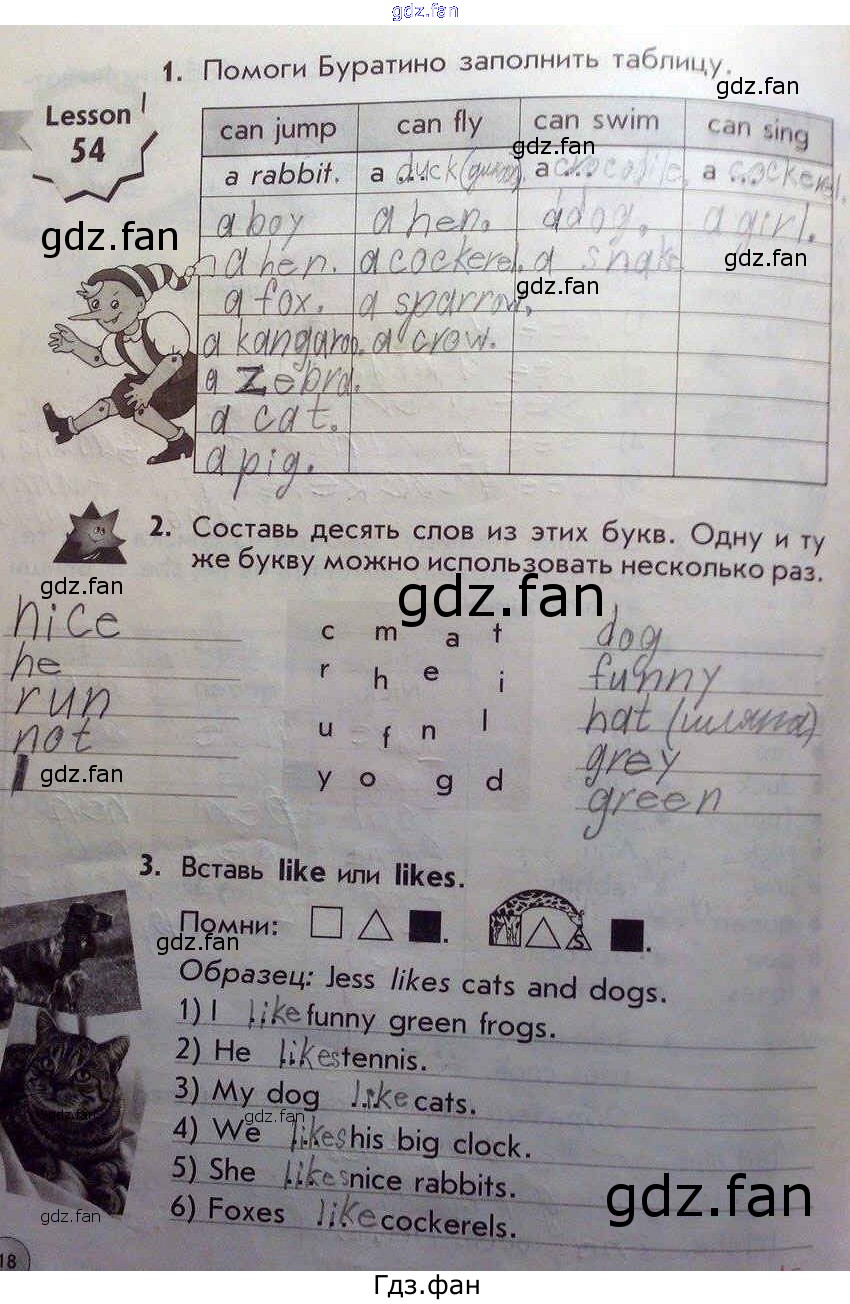 gdz.fan
1. Помоги Буратино заполнить таблицу.
gdz.fan
Lesson
54
can jump can fly can swim can sing
gdz.fan
a rabbit. a duck a crocodile. a cockerel.
a boy a hen. a dog. a girl.
gdz.fan
gdz.fan
a hen. a cockerel. a snake
gdz.fan
a fox. a sparrow.
a kangaroo. a crow.
a zebra.
a cat.
a pig.
2. Составь десять слов из этих букв. Одну и ту
же букву можно использовать несколько раз.
gdz.fan
gdz.fan
nice c m a t dog
he r h e i funny
run u f n l hat (шляпа)
not y o g d grey
gdz.fan
green
3. Вставь like или likes.
Помни:
gdz.fan
S
Образец: Jess likes cats and dogs.
1) I like funny green frogs.
gdz.fan
2) He likes tennis.
3) My dog like cats.
gdz.fan
4) We likes his big clock.
5) She likes nice rabbits.
gdz.fan
6) Foxes like cockerels.
gdz.fan
18
Гдз.фан